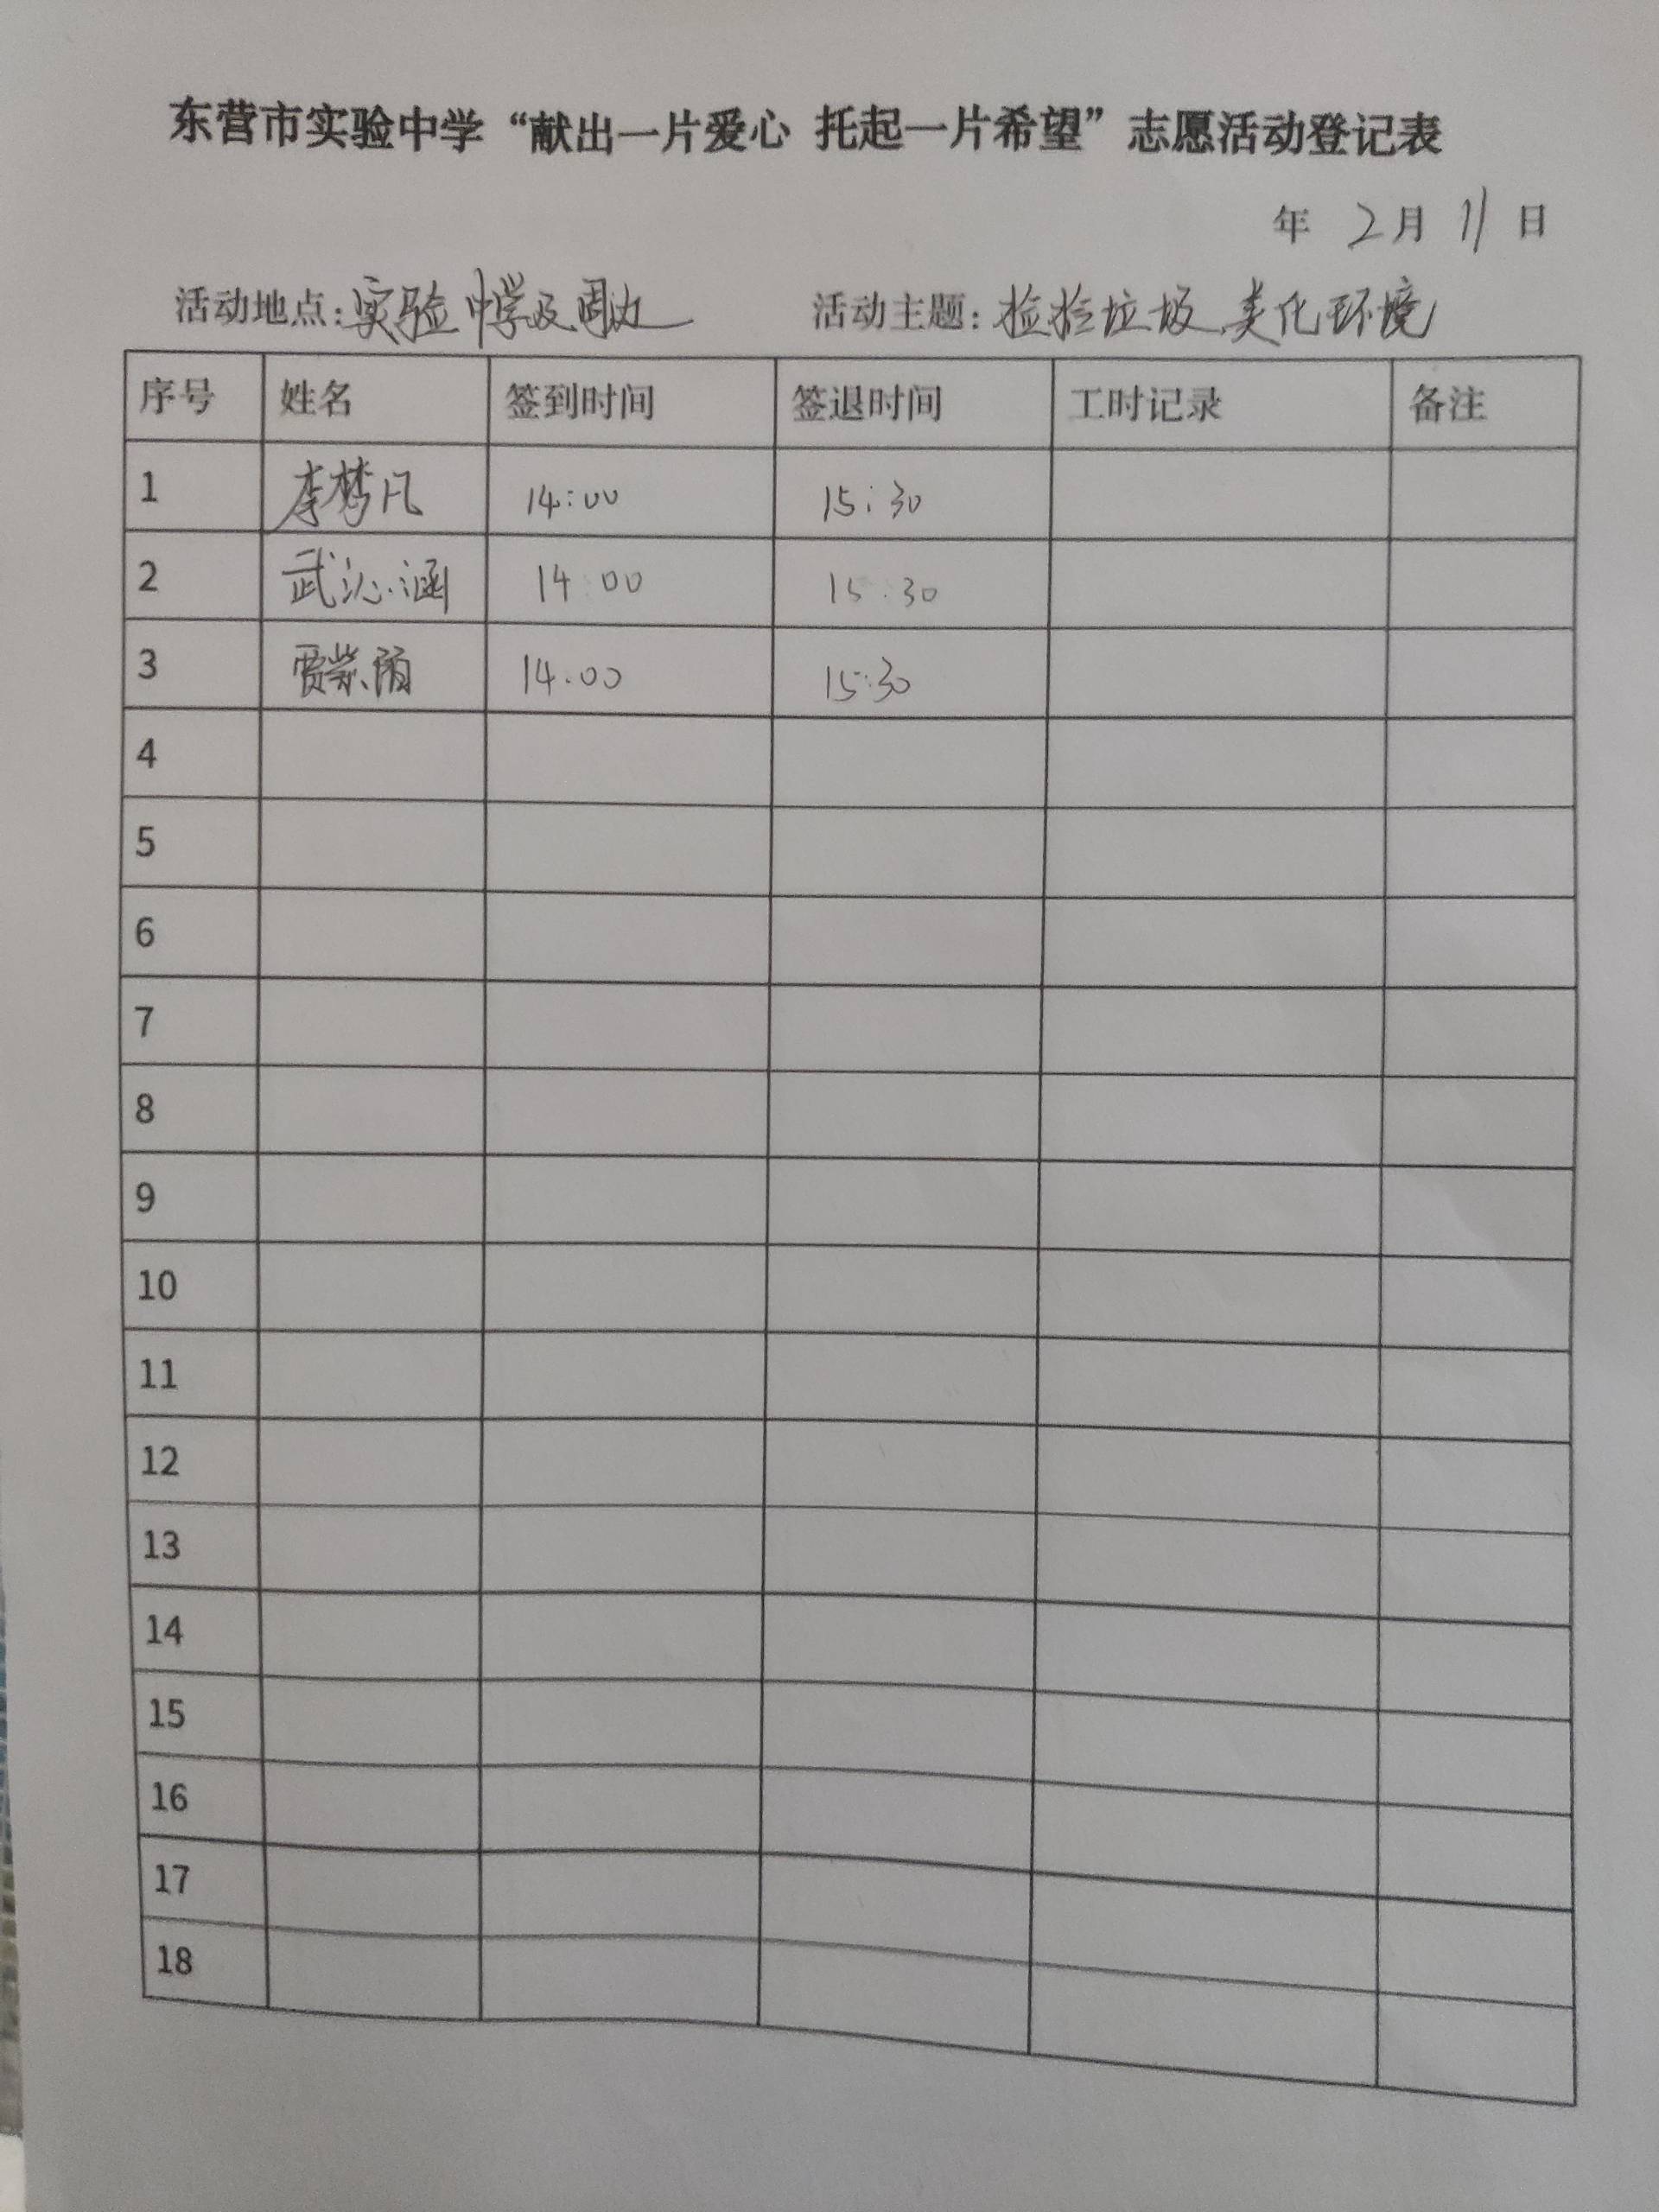 东营市实验中学“献出一片爱心 托起一片希望”志愿活动登记表
年 2月 11日
活动地点:实验中学及周边 活动主题:捡拾垃圾,美化环境
序号 姓名 签到时间 签退时间 工时记录 备注
1 李梦凡 14:00 15:30
2 武沁涵 14:00 15:30
3 贾紫 14:00 15:30
4
5
6
7
8
9
10
11
12
13
14
15
16
17
18